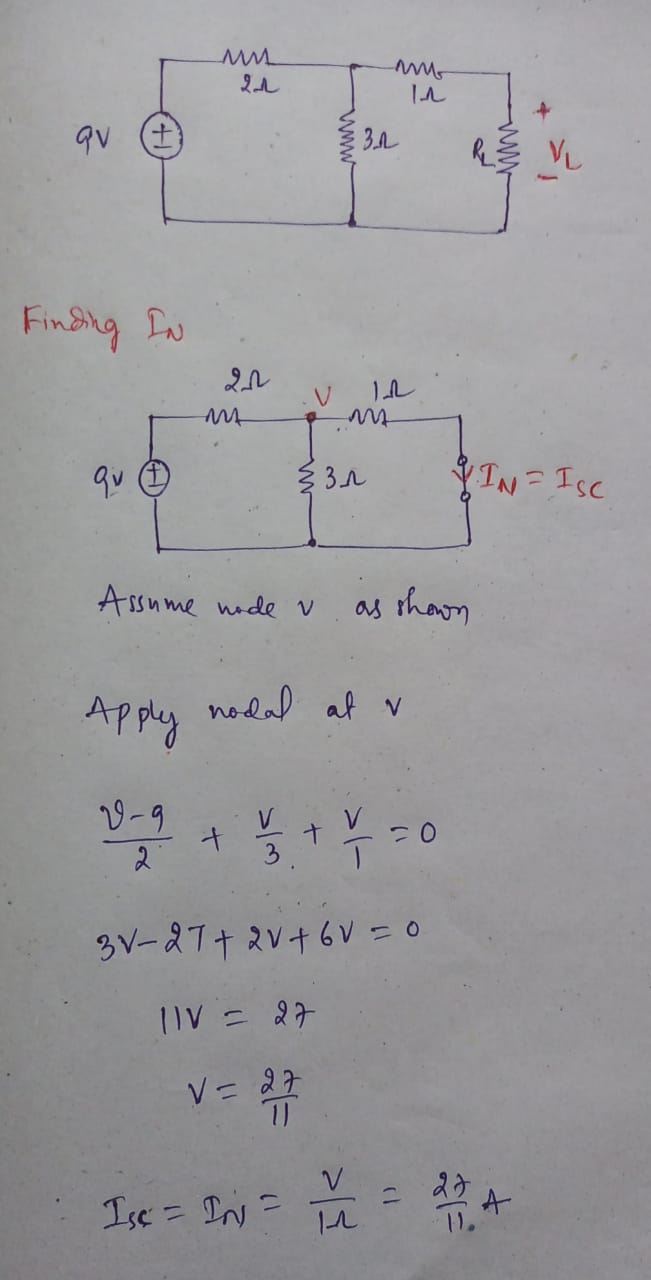 2Ω 1Ω
9V ± 3Ω R_L + V_L -
Finding I_N
2Ω V 1Ω
9V ± 3Ω I_N = I_SC
Assume node v as shown
Apply nodal at v
V-9/2 + V/3 + V/1 = 0
3V-27+2V+6V = 0
11V = 27
V = 27/11
I_SC = I_N = V/1Ω = 27/11 A